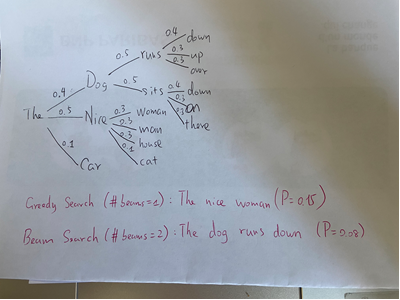 0.4 down
0.5 runs 0.3 up
0.3 over
Dog
0.4 0.5 sits 0.4 down
0.3 on
The 0.5 Nice 0.3 woman 0.3 there
0.3 man
0.3 house
0.1 0.1 cat
Car
Greedy Search (#beams=1): The nice woman (P=0.15)
Beam Search (#beams=2): The dog runs down (P=0.08)